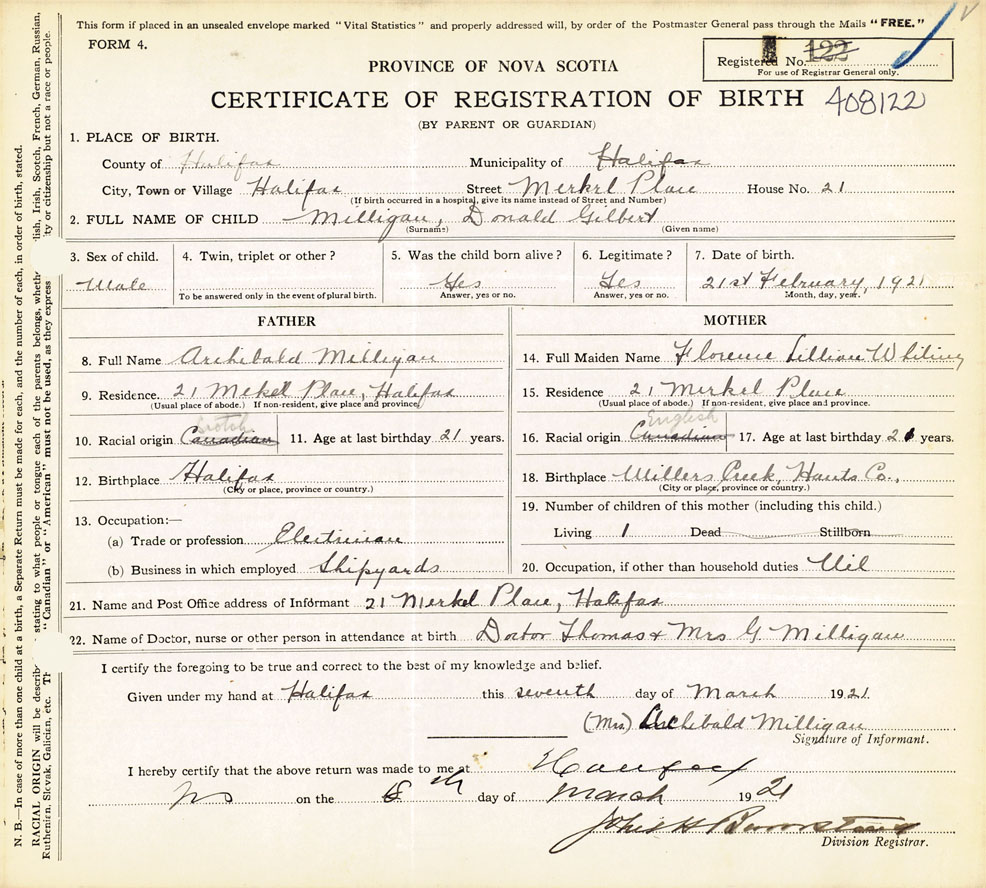 This form if placed in an unsealed envelope marked "Vital Statistics" and properly addressed will, by order of the Postmaster General pass through the Mails "FREE."
FORM 4.
Registered No. 122
For use of Registrar General only.
PROVINCE OF NOVA SCOTIA
CERTIFICATE OF REGISTRATION OF BIRTH 408122
(BY PARENT OR GUARDIAN)
1. PLACE OF BIRTH.
County of Halifax Municipality of Halifax
City, Town or Village Halifax Street Merkel Place House No. 21
(If birth occurred in a hospital, give its name instead of Street and Number)
2. FULL NAME OF CHILD Milligan, Donald Gilbert
(Surname) (Given name)
3. Sex of child. 4. Twin, triplet or other? 5. Was the child born alive? 6. Legitimate? 7. Date of birth.
Male Yes Yes 21st February, 1921
To be answered only in the event of plural birth. Answer, yes or no. Answer, yes or no. Month, day, year.
FATHER
8. Full Name Archibald Milligan
9. Residence. 21 Mekel Place, Halifax
(Usual place of abode.) If non-resident, give place and province
Scotch
10. Racial origin Canadian 11. Age at last birthday 21 years.
12. Birthplace Halifax
(City or place, province or country.)
13. Occupation:—
(a) Trade or profession Electrician
(b) Business in which employed Shipyards
MOTHER
14. Full Maiden Name Florence Lillian Whiting
15. Residence 21 Merkel Place
(Usual place of abode.) If non-resident, give place and province.
English
16. Racial origin Canadian 17. Age at last birthday years.
18. Birthplace Millers Creek, Hants Co.,
(City or place, province or country.)
19. Number of children of this mother (including this child.)
Living 1 Dead Stillborn
20. Occupation, if other than household duties Nil
21. Name and Post Office address of Informant 21 Merkel Place, Halifax
22. Name of Doctor, nurse or other person in attendance at birth Doctor Thomas & Mrs G. Milligan
I certify the foregoing to be true and correct to the best of my knowledge and belief.
Given under my hand at Halifax this seventh day of March 1921.
(Mrs) Archibald Milligan
Signature of Informant.
I hereby certify that the above return was made to me at Halifax
NS on the 8th day of March 1921
John H
Division Registrar.
N. B.—In case of more than one child at a birth, a Separate Return must be made for each, and the number of each, in order of birth, stated.
RACIAL ORIGIN will be describ stating to what people or tongue each of the parents belongs, wheth lish, Irish, Scotch, French, German, Russian,
Ruthenian, Slovak, Galician, etc. Th "Canadian" or "American" must not be used, as they express ty or citizenship but not a race or people.